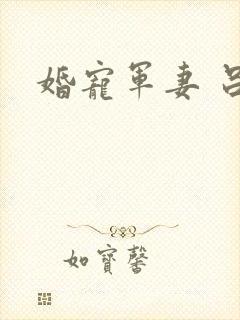 婚寵軍妻
如寶馨